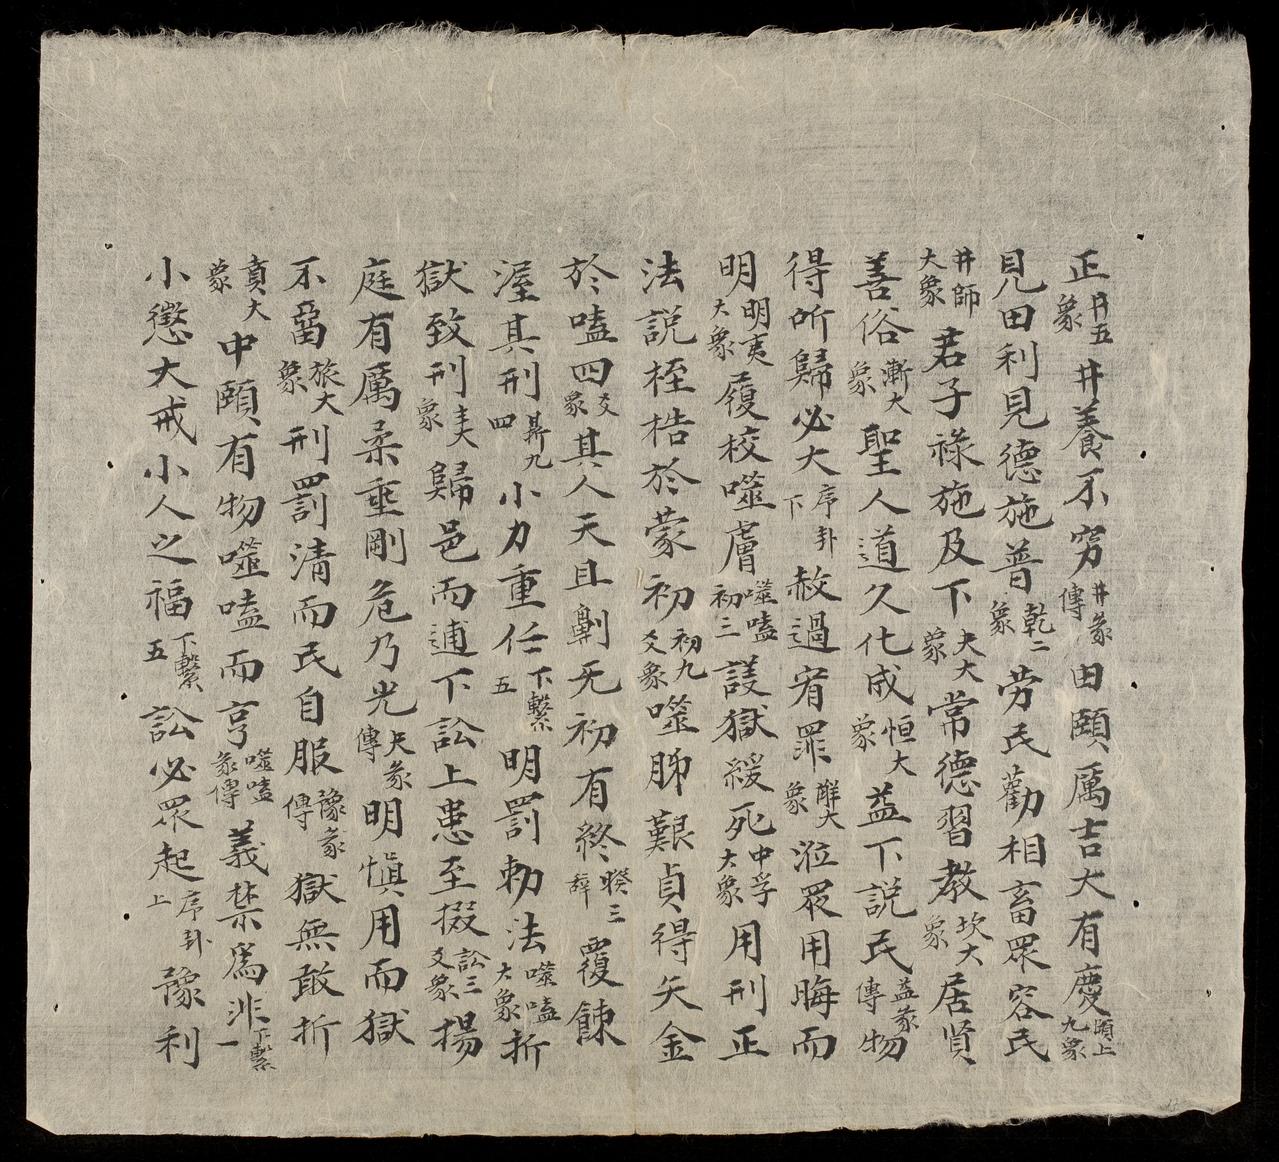 正井五象井養不窮井彖傳由頤厲吉大有慶頤上九象
見田利見德施普乾二象勞民勸相畜眾容民
井師大象君子祿施及下夬大象常德習教坎大象居賢
善俗漸大象聖人道久化成恒大象益下說民益彖傳物
得所歸必大序卦下赦過宥罪解大象涖眾用晦而
明明夷大象履校噬膚噬嗑初二議獄緩死中孚大象用刑正
法說桎梏於蒙初初九爻象噬胏艱貞得矢金
於嗑四爻象其人天且劓无初有終睽三辭覆餗
渥其刑鼎九四小力重任下繫五明罰勅法噬嗑大象折
獄致刑丰大象歸邑而逋下訟上患至掇訟三爻象揚
庭有厲柔乘剛危乃光夬彖傳明慎用而獄
不留旅大象刑罰清而民自服豫彖傳獄無敢折
賁大象中頤有物噬嗑而亨噬嗑彖傳義禁為非下繫一
小懲大戒小人之福下繫五訟必眾起序卦上豫利